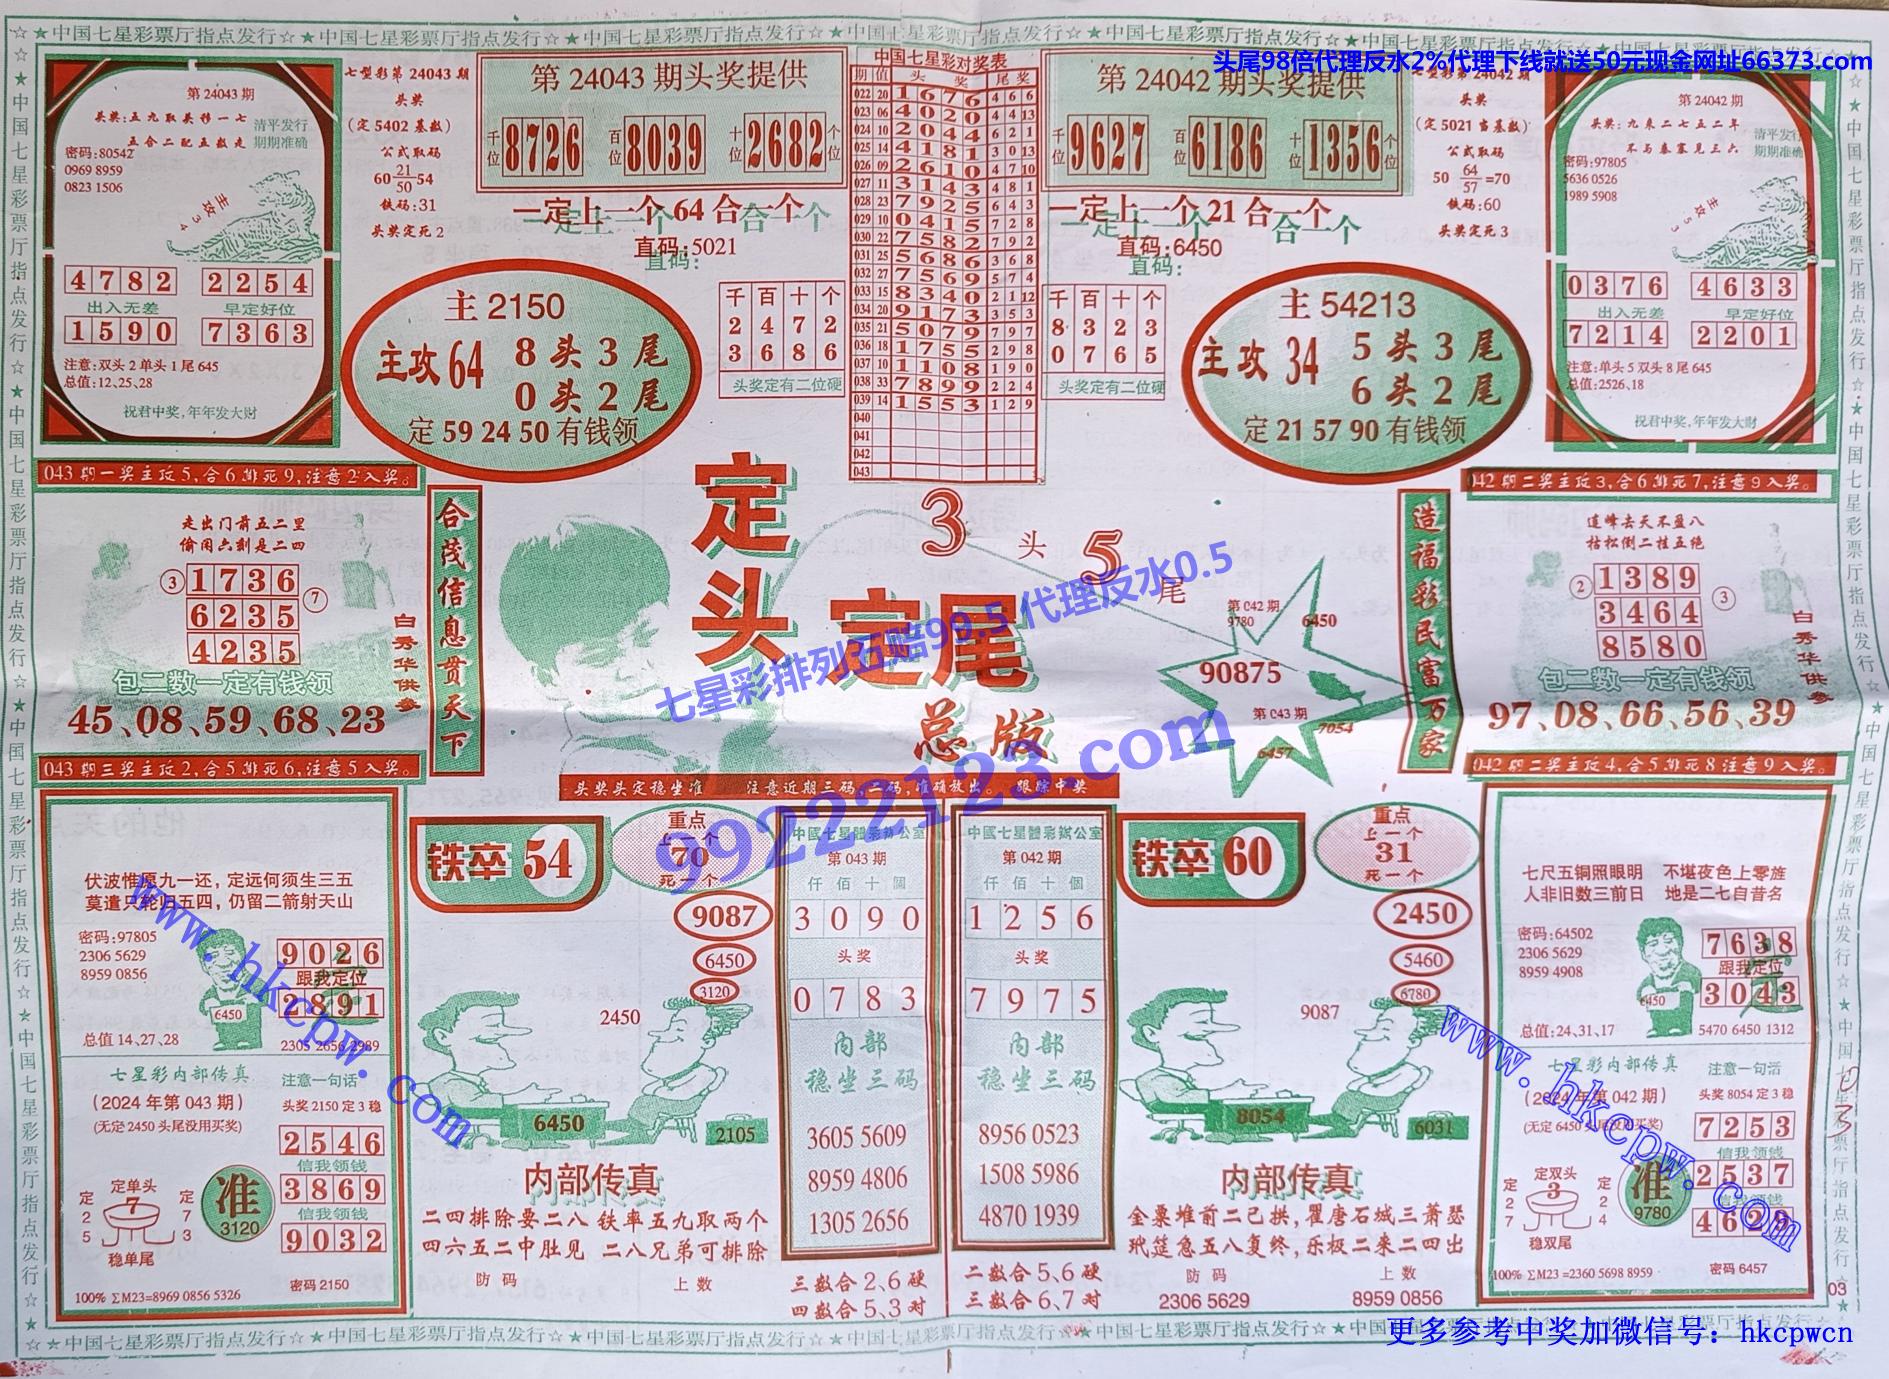 ☆★中国七星彩票厅指点发行☆★中国七星彩票厅指点发行☆★中国七星彩票厅指点发行☆★中国七星彩票厅指点发行☆★中国七星彩票厅指点发行☆★中国七星彩票厅指点发行☆★中国七星彩票厅指点发行☆
头尾98倍代理反水2%代理下线就送50元现金网址66373.com
第 24043 期
头奖:五九取头移一七
五合二配五数走
清平发行
期期准确
密码:80542
0969 8959
0823 1506
主攻34
4782 2254
出入无差 早定好位
1590 7363
注意:双头 2 单头 1 尾 645
总值:12、25、28
祝君中奖,年年发大财
七型彩第 24043 期
头奖
(定 5402 基数)
公式取码
60 21/50 54
铁码:31
头奖定死 2
第 24043 期头奖提供
千位 8726 百位 8039 十位 2682 个位
一定上一个 64 合一个
直码:5021
主 2150
主攻 64 8 头 3 尾
0 头 2 尾
定 59 24 50 有钱领
千 百 十 个
2 4 7 2
3 6 8 6
头奖定有二位硬
中国七星彩对奖表
期 值 头 奖 尾 奖
022 20 1676 4 6 6
023 06 4020 4 4 13
024 10 2044 6 2 1
025 14 4181 3 0 13
026 09 2610 4 7 10
027 11 3143 4 8 1
028 23 7925 6 4 3
029 10 0415 7 2 8
030 22 7582 7 9 2
031 25 5686 3 6 8
032 27 7569 5 7 4
033 15 8340 2 1 12
034 20 9173 3 5 3
035 21 5079 7 9 7
036 18 1755 2 9 8
037 10 1108 1 9 0
038 33 7899 2 2 4
039 14 1553 1 2 9
040
041
042
043
第 24042 期头奖提供
千位 9627 百位 6186 十位 1356 个位
一定上一个 21 合一个
直码:6450
千 百 十 个
8 3 2 3
0 7 6 5
头奖定有二位硬
主 54213
主攻 34 5 头 3 尾
6 头 2 尾
定 21 57 90 有钱领
七型彩第 24042 期
头奖
(定 5021 当基数)
公式取码
50 64/57 =70
铁码:60
头奖定死 3
第 24042 期
头奖:九来二七五二年
不与秦塞见三六
清平发行
期期准确
密码:97805
5636 0526
1989 5908
0376 4633
出入无差 早定好位
7214 2201
注意:单头 5 双头 8 尾 645
总值:2526、18
祝君中奖,年年发大财
043 期一奖主攻 5,合 6 排死 9,注意 2 入奖。
走出门前五二里
偷闲六刻是二四
③ 1736
6235 ⑦
4235
包二数一定有钱领
45、08、59、68、23
白秀华供参
合茂信息贯天下
定头
定尾
3 头 5 尾
总版
七星彩排列五赔99.5 代理反水0.5
99222123.com
第 042 期
9780
6450
90875
第 043 期
7054
6457
造福彩民富万家
042 期二奖主攻 3,合 6 排死 7,注意 9 入奖。
道峰去天不盈八
枯松倒二挂五绝
② 1389
3464 ③
8580
包二数一定有钱领
97、08、66、56、39
白秀华供参
043 期三奖主攻 2,合 5 排死 6,注意 5 入奖。
头奖头定稳坐准 注意近期三码,二码,准确放出。 跟踪中奖
042 期二奖主攻 4,合 5 排死 8 注意 9 入奖。
伏波惟愿九一还,定远何须生三五
莫遣只轮归五四,仍留二箭射天山
密码:97805
2306 5629
8959 0856
6450
9026
跟我定位
2891
总值 14、27、28
2305 2656 2989
七星彩内部传真
(2024 年第 043 期)
(无定 2450 头尾没用买奖)
注意一句话
头奖 2150 定 3 稳
2546
信我领钱
3869
信我领钱
9032
定单头
7
定25 定73
稳单尾
准
3120
100% ∑M23=8969 0856 5326
密码 2150
www.hkcpw.com
铁卒 54
重点
上一个
70
死一个
9087
6450
3120
2450
6450
2105
内部传真
二四排除要二八 铁率五九取两个
四六五二中肚见 二八兄弟可排除
防码 上数
中國七星體彩辦公室
第 043 期
仟 佰 十 個
3090
头奖
0783
内部
稳坐三码
3605 5609
8959 4806
1305 2656
三数合 2、6 硬
四数合 5、3 对
中國七星體彩辦公室
第 042 期
仟 佰 十 個
1256
头奖
7975
内部
稳坐三码
8956 0523
1508 5986
4870 1939
二数合 5、6 硬
三数合 6、7 对
铁卒 60
重点
上一个
31
死一个
2450
5460
6780
9087
8054
6031
内部传真
金粟堆前二已拱,瞿唐石城三萧瑟
玳筵急五八复终,乐极二来二四出
防码 上数
2306 5629 8959 0856
七尺五铜照眼明 不堪夜色上零旌
人非旧数三前日 地是二七自昔名
密码:64502
2306 5629
8959 4908
6450
7638
跟我定位
3043
总值:24、31、17
5470 6450 1312
七星彩内部传真
(2024 年第 042 期)
(无定 6450 头尾没用买奖)
注意一句话
头奖 8054 定 3 稳
7253
信我领钱
2537
信我领钱
4629
定双头
3
定27 定24
稳双尾
准
9780
100% ∑M23=2360 5698 8959
密码 6457
www.hkcpw.com
03
更多参考中奖加微信号：hkcpwcn
☆★中国七星彩票厅指点发行☆★中国七星彩票厅指点发行☆★中国七星彩票厅指点发行☆★中国七星彩票厅指点发行☆★中国七星彩票厅指点发行☆